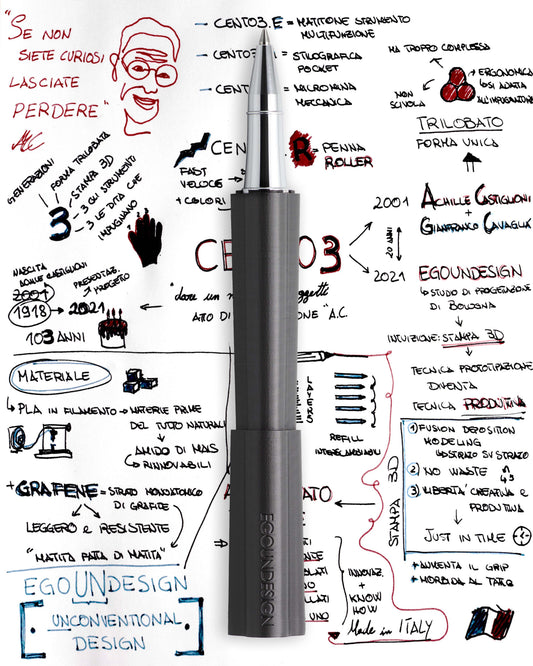 "SE NON
SIETE CURIOSI
LASCIATE
PERDERE"
CENTO3.E = MATITONE STRUMENTO
MULTIFUNZIONE
= STILOGRAFICA
POCKET
= MICROMINA
MECCANICA
R = PENNA
ROLLER
FAST
VELOCE
+ COLORI
MA TROPPO COMPLESSA
NON
SCIVOLA
ERGONOMICA
SI ADATTA
ALL'IMPUGNATURA
TRILOBATO
FORMA UNICA
3
GENERAZIONI
FORMA TRILOBATA
STAMPA 3D
3 GLI STRUMENTI
3 LE DITA CHE
IMPUGNANO
2001
ACHILLE CASTIGLIONI
+
GIANFRANCO CAVAGLIÀ
20 ANNI
2021
EGOUNDESIGN
STUDIO DI PROGETTAZIONE
DI BOLOGNA
INTUIZIONE: STAMPA 3D
TECNICA PROTOTIPAZIONE
DIVENTA
TECNICA PRODUTTIVA
NASCITA
ACHILLE CASTIGLIONI
2001
1918 → 2021
PRESENTAZ.
PROGETTO
103 ANNI
"dare un
ATTO DI
"A.C.
MATERIALE
PLA IN FILAMENTO → MATERIE PRIME
DEL TUTTO NATURALI
AMIDO DI MAIS
RINNOVABILI
+ GRAFENE = STRATO MONOATOMICO
DI GRAFITE
LEGGERO E RESISTENTE
"MATITA FATTA DI MATITA"
LAYERS
REFILL
INTERCAMBIABILI
STAMPA 3D
1 FUSION DEPOSITION
MODELING
STRATO SU STRATO
2 NO WASTE
3 LIBERTÀ CREATIVA E
PRODUTTIVA
JUST IN TIME
+ AUMENTA IL GRIP
+ MORBIDA AL TATTO
INNOVAZ.
+
KNOW
HOW
Made in ITALY
EGOUNDESIGN
EGOUNDESIGN
UNCONVENTIONAL
DESIGN